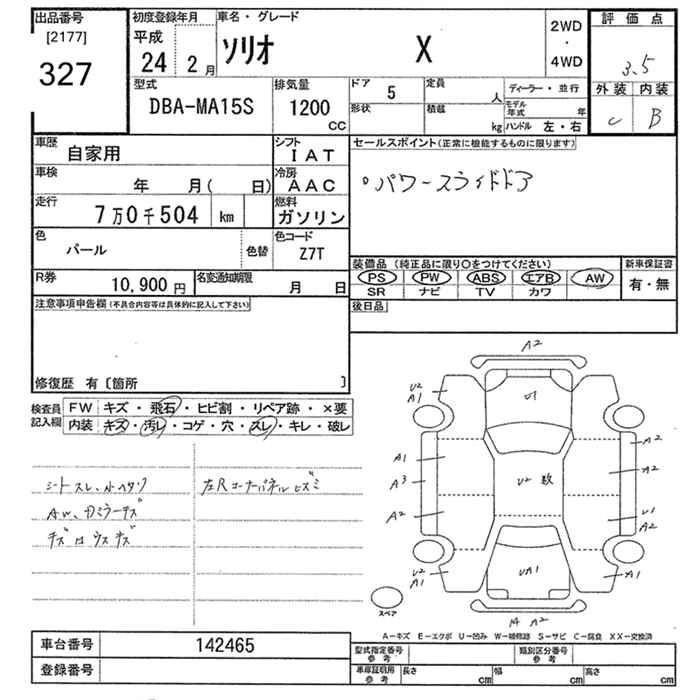 出品番号 初度登録年月 車名・グレード 2WD・4WD 評価点
[2177]
327
平成 24 2月 ソリオ X 3.5
型式 排気量 ドア 5 定員 人 ディーラー・並行 外装 内装
DBA-MA15S 1200 CC 形状 積載 kg モデル年式 年 C B
ハンドル 左・右
車歴 自家用 シフト IAT セールスポイント(正常に機能するものに限ります)
車検 年 月( 日) 冷房 AAC 。パワースライドドア
走行 7万0千504 km 燃料 ガソリン
色 パール 色替 色コード Z7T 装備品(純正品に限り○をつけてください) 新車保証書
R券 10,900円 名変通知期限 月 日 PS PW ABS エアB AW 有・無
SR ナビ TV カワ
注意事項申告欄(不具合内容等は具体的に記入して下さい) 後日品
修復歴 有〔箇所 〕
検査員記入欄 FW キズ・飛石・ヒビ割・リペア跡・×要
内装 キズ・汚レ・コゲ・穴・スレ・キレ・破レ
シートスレ、
左Rコーナーパネルヒズミ
AW、
A2
U2 A1 U1
A2
A1
A3 U2 A2
A2 U1 A2
U2 A1 UA1 A1
A2
スペア
A-キズ E-エクボ U-凹み W-補修跡 S-サビ C-腐食 XX-交換済
車台番号 142465 型式指定番号 参考 類別区分番号 参考
登録番号 車庫証明用 参考 長さ cm 幅 cm 高さ cm